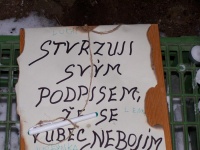 STVRZUJI
SVÝM
PODPISEM,
ŽE SE
VŮBEC NEBOJÍM